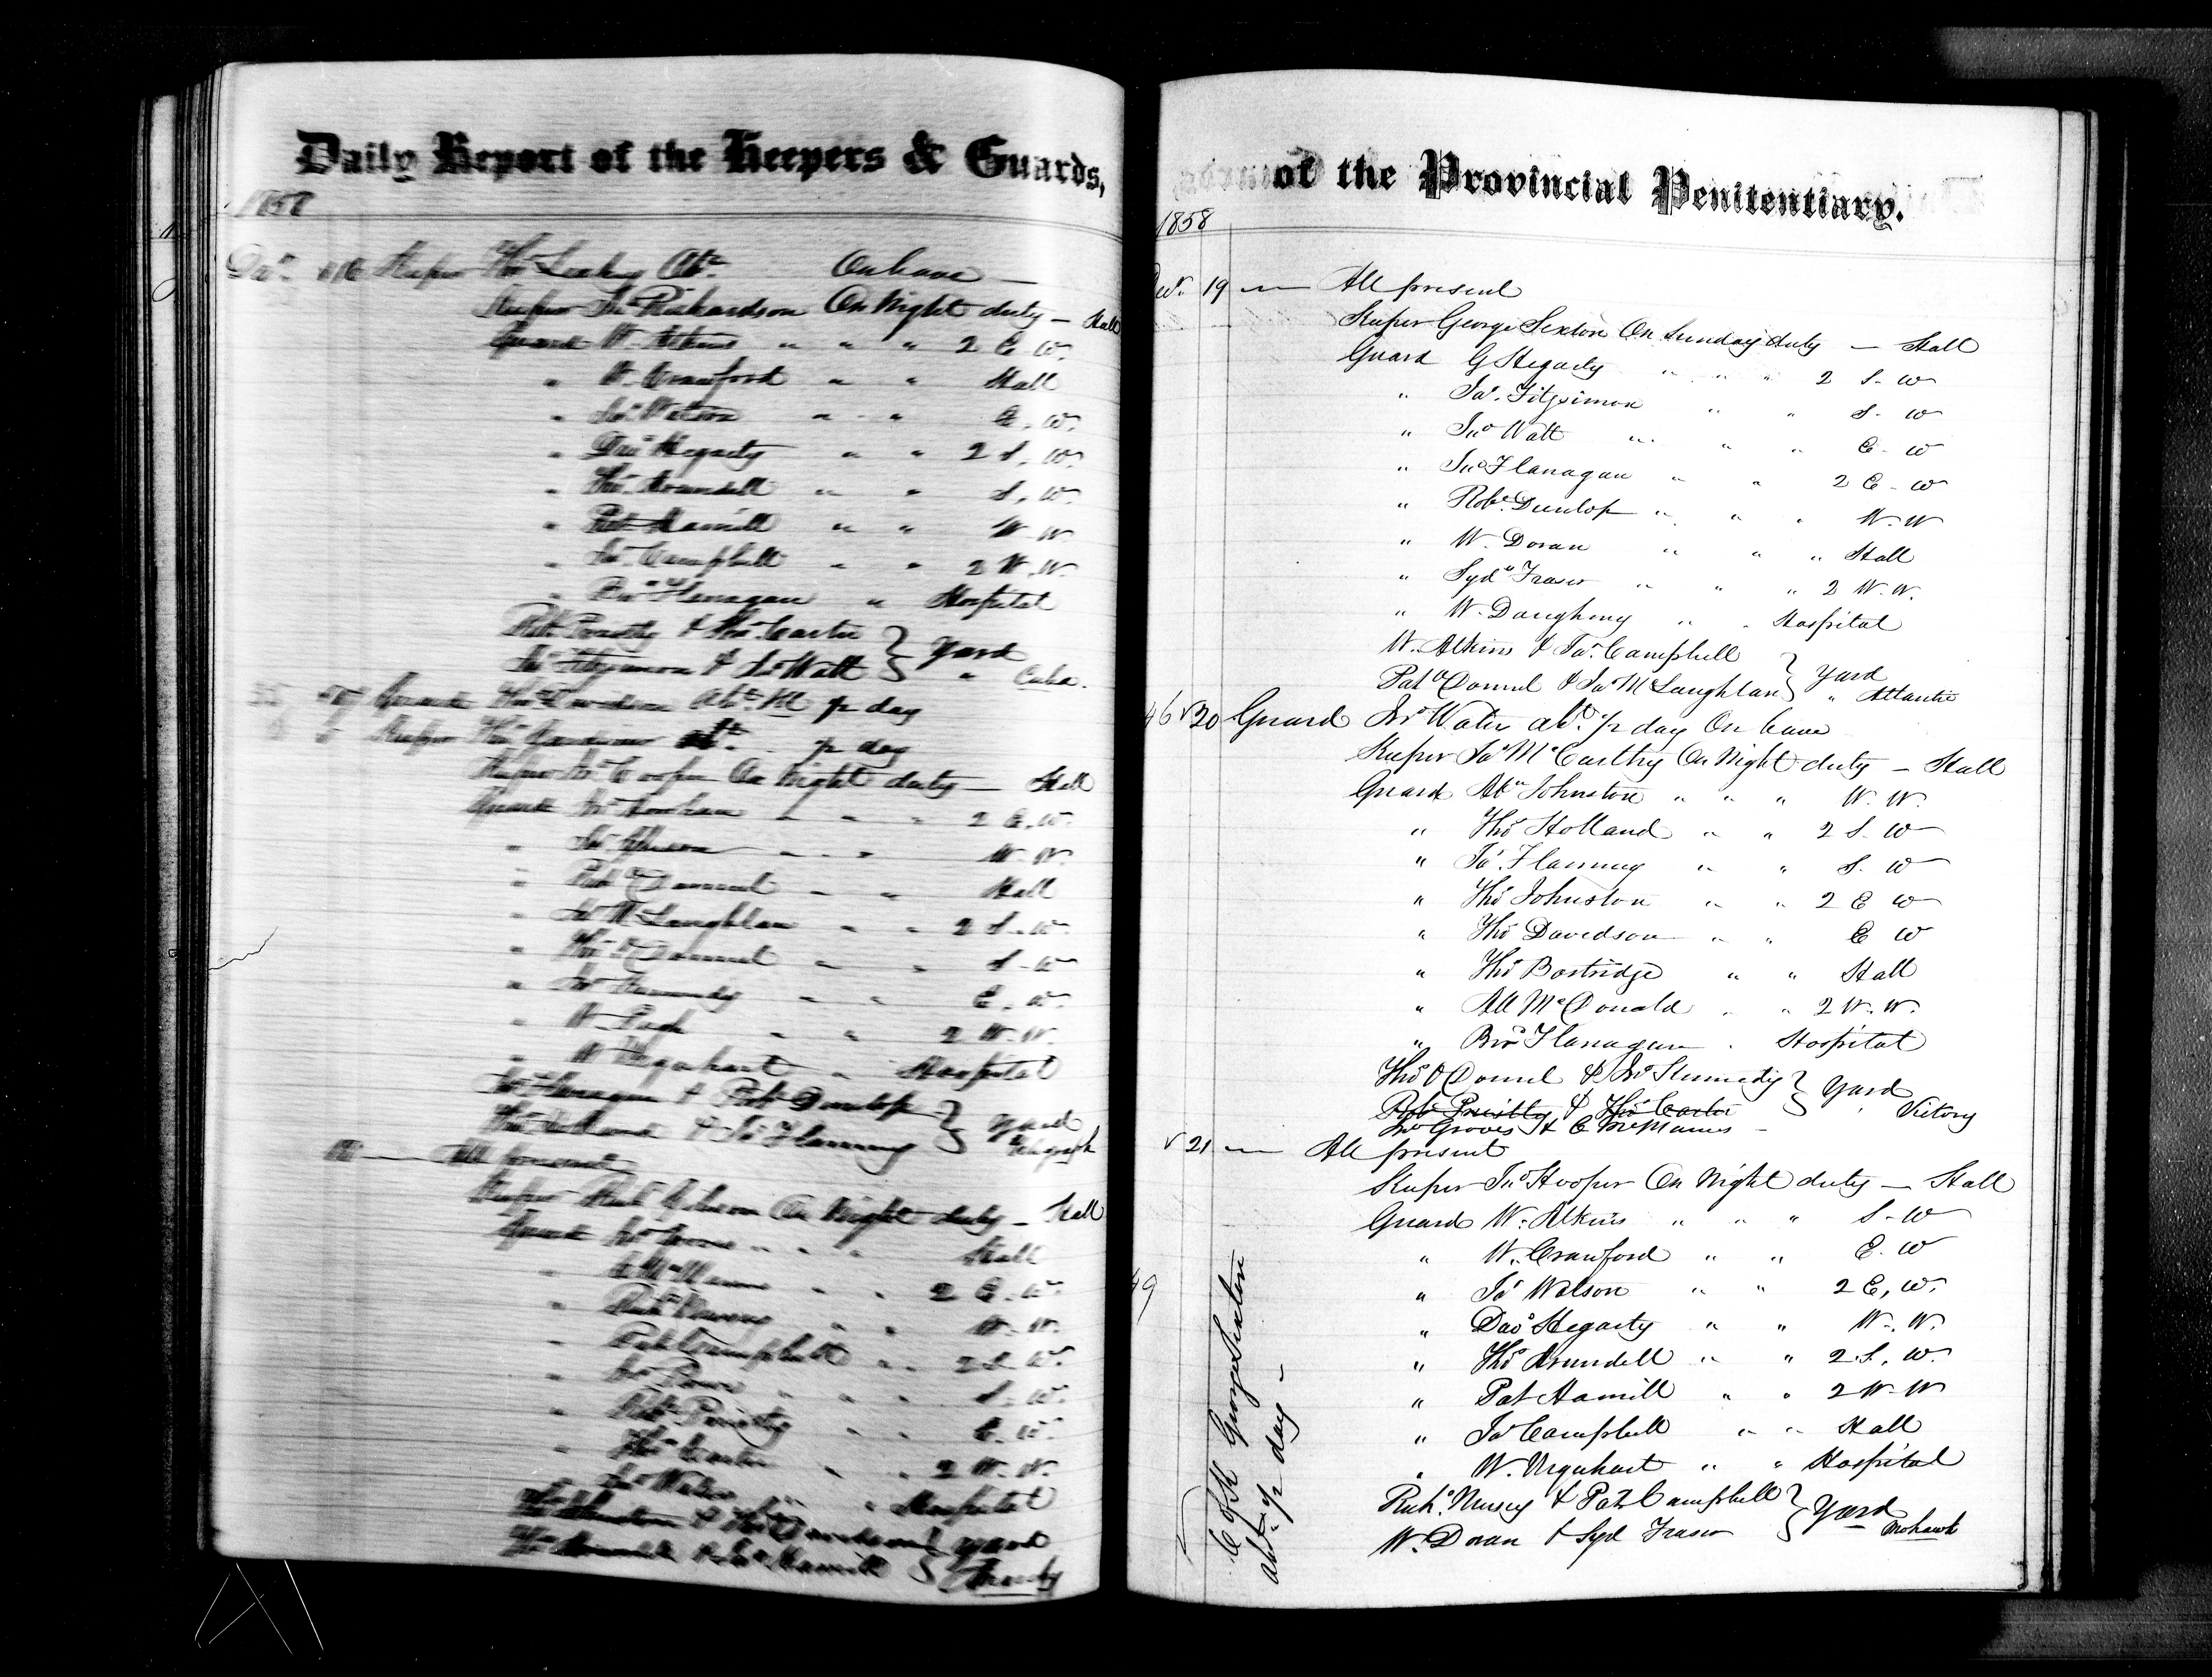 Daily Report of the Keepers & Guards,
1858
Decr. 16 Keeper Thos Leahy Abt. On leave
Keeper Jno Richardson On Night duty — Hall
Guard W. Atkins " " " 2 E. W.
" W. Crawford " " Hall
" Jas Watson " " E. W.
" Davd Hegarty " " 2 S. W.
" Thos Arundell " " S. W.
" Pat Hamill " " W. W.
" Jas Campbell " " 2 W. W.
" Brd Flanagan " Hospital
Robt Priestly & Thos Carter } Yard
Jas Fitzsimon & Jno Watt } " Cuba.
17 Guard Thos Davidson Abt p day
Keeper Thos Gardiner Abt. p day
Keeper Jno Hooper On Night duty — Hall
Guard 2 E. W.
" Jas Gibson " " W. W.
" Pat O'Donnel " " Hall
" Jas McLaughlan " " 2 S. W.
" Thos O'Donnel " " S. W.
" Jno Kennedy " " E. W.
" W. " " 2 W. W.
" W Urquhart " Hospital
Jno Flanagan & Robt Dunlop } Yard
Thos Holland & Jas Flanning } Telegraph
18 — All present
Keeper Richd Gibson On Night duty — Hall
Guard Jno Groves " " " Hall
" C McManus " " 2 E. W.
" Richd Musey " " W. W.
" Pat Campbell " " 2 S. W.
" Jno " " S. W.
" Robt Priestly " " E. W.
" Thos Carter " " 2 W. W.
Jno Water " " Hospital
Thos Johnston & Thos Davidson } Yard
Thos Arundell & Pat Hamill }
of the Provincial Penitentiary.
1858
Decr. 19 — All present
Keeper George Sexton On Sunday duty — Hall
Guard G Hegarty " " " 2 S. W
" Jas. Fitzsimon " " S. W
" Jno Watt " " " E. W
" Jno Flanagan " " 2 E. W
" Robt. Dunlop " " " W. W
" W. Doran " " " Hall
" Sydn Fraser " " " 2 W. W.
" W. Daugheny " " Hospital
W. Atkins & Jas. Campbell } Yard
Pat O'Donnel & Jas McLaughlan } " Atlantic
46 √ 20 Guard Jno Water abt. p day On leave
Keeper Jas McCarthy On Night duty — Hall
Guard Abm Johnston " " " W. W.
" Thos Holland " " 2 S. W
" Jas. Flanning " " S. W
" Thos Johnston " " 2 E W
" Thos Davidson " " E W
" Thos Bostridge " " Hall
" All McDonald " " 2 W. W.
" Brd Flanagan " Hospital
Thos O'Donnel & Jno Kennedy } Yard
Robt Priestly & Thos Carter } " Victory
Jno Groves & C McManus —
√ 21 — All present
Keeper Jno Hooper On Night duty — Hall
Guard W. Atkins " " " S. W
" W. Crawford " " E. W
49 " Jas Watson " " 2 E, W.
" Davd Hegarty " " W. W.
" Thos Arundell " " 2 S. W.
" Pat Hamill " " 2 W. W
" Jas Campbell " " Hall
" W. Urquhart " " Hospital
Richd. Musey & Pat Campbell } Yard
W. Doran & Syd Fraser } Mohawk
George Sexton
abt. p day —